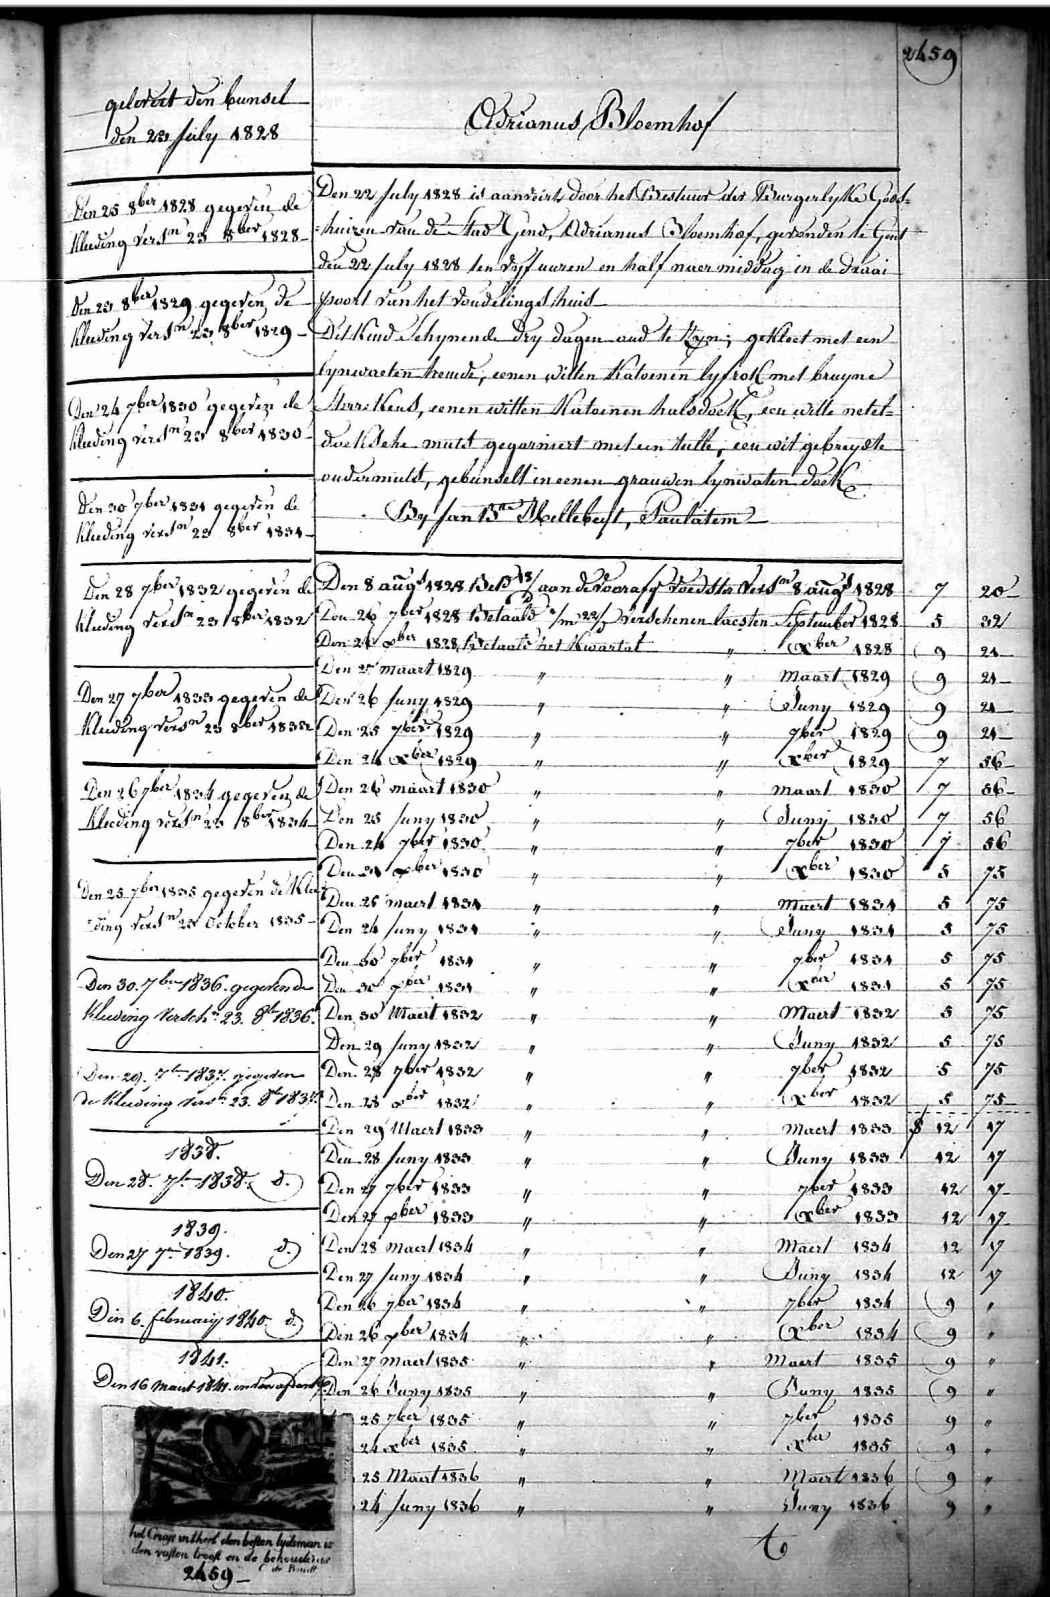 2459
gelevert den bunsel
den 23 july 1828
Adrianus Bloemhof
Den 22 july 1828 is aanveirt door het Bestuur der Burgerlyke Gods=
=huizen van de stad Gend, Adrianus Bloemhof, gevonden te Gent
den 22 july 1828 ten vyf uuren en half naer middag in de draai
poort van het vondelingshuis
Dit kind schynende dry dagen oud te zyn; gekleet met een
lynwaeten hemde, eenen witten katoenen lyfrok met bruyne
sterrekens, eenen witten katoenen halsdoek, een witte netel=
doeksche muts gegarniert met een tulle, een wit gebreyde
ondermuts, gebunselt in eenen grauwen lynwaten doek
By Jan Bte Mellebeyt, Paulatem
Den 25 8ber 1828 gegeven de
kleeding versn 23 8ber 1828
Den 23 8ber 1829 gegeven de
kleeding versn 23 8ber 1829
Den 24 7ber 1830 gegeven de
kleeding versn 23 8ber 1830
Den 30 7ber 1831 gegeven de
kleeding versn 23 8ber 1831
Den 28 7ber 1832 gegeven de
kleeding versn 23 8ber 1832
Den 27 7ber 1833 gegeven de
kleeding versn 23 8ber 1833
Den 26 7ber 1834 gegeven de
kleeding versn 23 8ber 1834
Den 25 7ber 1835 gegeven de Klee
=ding versn 23 October 1835
Den 30. 7ber 1836. gegeven de
kleeding versch. 23. 8br 1836.
Den 29. 7br 1837. gegeven
de kleeding versn. 23. 8br 1837.
1838.
Den 28. 7br 1838. d.
1839.
Den 27 7br 1839. d.
1840.
Den 6. february 1840. d.
1841.
Den 16 maert 1841
Den 8 augt 1828 aan de voorafg voedster versn 8 augt 1828 7 20
Den 26 7ber 1828 Betaald verschenen laesten September 1828 5 32
Den 24 xber 1828 Betaald het Kwartal " xber 1828 9 21
Den 27 maart 1829 " " Maart 1829 9 21
Den 26 juny 1829 " " Juny 1829 9 21
Den 25 7ber 1829 " " 7ber 1829 9 21
Den 24 xber 1829 " " xber 1829 7 56
Den 26 maart 1830 " " maart 1830 7 56
Den 25 juny 1830 " " Juny 1830 7 56
Den 24 7ber 1830 " " 7ber 1830 7 56
Den 31 xber 1830 " " xber 1830 5 75
Den 25 maert 1831 " " Maert 1831 5 75
Den 24 juny 1831 " " Juny 1831 5 75
Den 30 7ber 1831 " " 7ber 1831 5 75
Den 30 xber 1831 " " xber 1831 5 75
Den 30 Maert 1832 " " Maert 1832 5 75
Den 29 juny 1832 " " Juny 1832 5 75
Den 28 7ber 1832 " " 7ber 1832 5 75
Den 28 xber 1832 " " xber 1832 5 75
Den 29 Maert 1833 " " Maert 1833 12 17
Den 28 juny 1833 " " Juny 1833 12 17
Den 27 7ber 1833 " " 7ber 1833 12 17
Den 27 xber 1833 " " xber 1833 12 17
Den 28 maert 1834 " " Maert 1834 12 17
Den 27 juny 1834 " " Juny 1834 12 17
Den 26 7ber 1834 " " 7ber 1834 9 "
Den 26 xber 1834 " " xber 1834 9 "
Den 27 maert 1835 " " Maert 1835 9 "
Den 26 Juny 1835 " " Juny 1835 9 "
25 7ber 1835 " " 7ber 1835 9 "
24 xber 1835 " " xber 1835 9 "
25 Maert 1836 " " Maert 1836 9 "
24 juny 1836 " " Juny 1836 9 "
het Cruys in t hert den besten lydsman is
den vasten troost en de behoudenis
2459